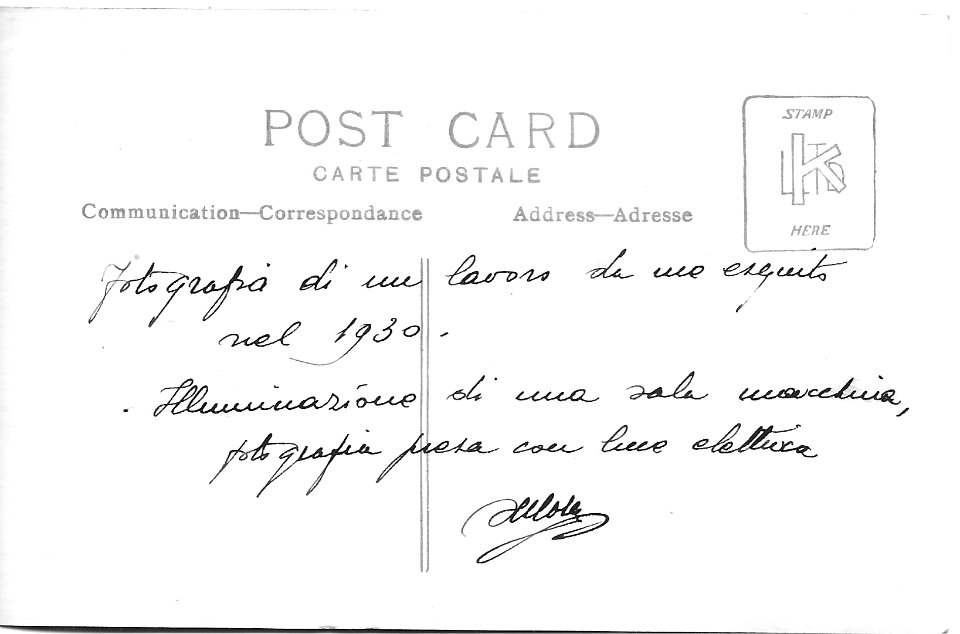 POST CARD
CARTE POSTALE
Communication—Correspondance
Address—Adresse
STAMP
HERE
Fotografia di un lavoro da me eseguito
nel 1930.
. Illuminazione di una sala macchina,
fotografia presa con luce elettrica